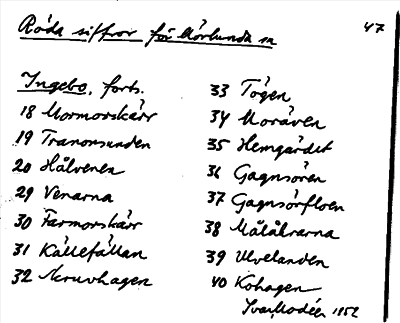 Röda siffror för Mörlunda sn
47
Ingebo, forts.
18 Mormorskärr
19 Tranornunden
20 Hålvenen
29 Venarna
30 Farmorskärr
31 Källefällan
32 Skruvhagen
33 Tögen
34 Moräven
35 Hemgärdet
36 Gagnsören
37 Gagnsörfloen
38 Målålrarna
39 Ulvelanden
40 Kohagen
Ivar Modéer 1952